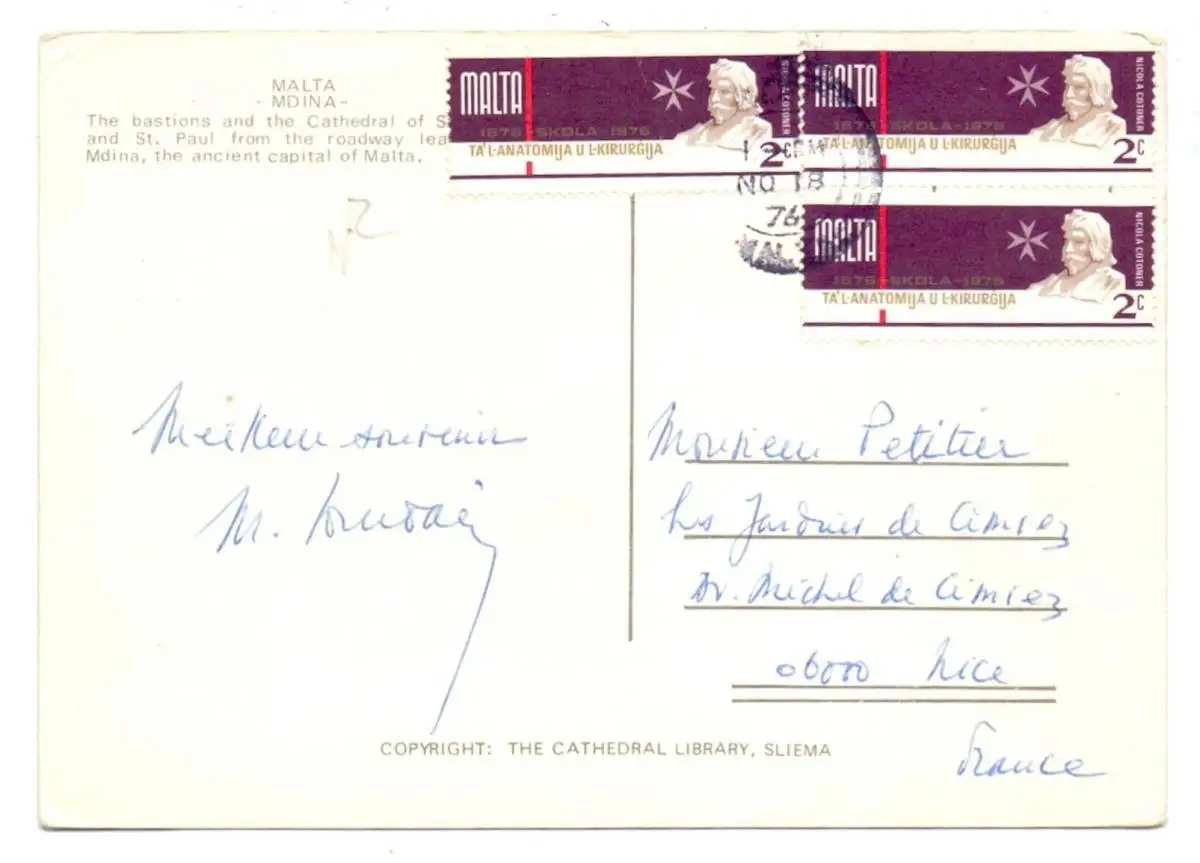 MALTA
- MDINA -
The bastions and the Cathedral of S
and St. Paul from the roadway lea
Mdina, the ancient capital of Malta.
MALTA
1676-SKOLA-1976
TA'L-ANATOMIJA U L-KIRURĠIJA
NICOLA COTONER
2c
MALTA
1676-SKOLA-1976
TA'L-ANATOMIJA U L-KIRURĠIJA
NICOLA COTONER
2c
NO 18
76
MALTA
1676-SKOLA-1976
TA'L-ANATOMIJA U L-KIRURĠIJA
NICOLA COTONER
2c
Meilleur souvenir
M.
Monsieur Petitier
Les Jardins de Cimiez
Av. Michel de Cimiez
06000 Nice
France
COPYRIGHT: THE CATHEDRAL LIBRARY, SLIEMA